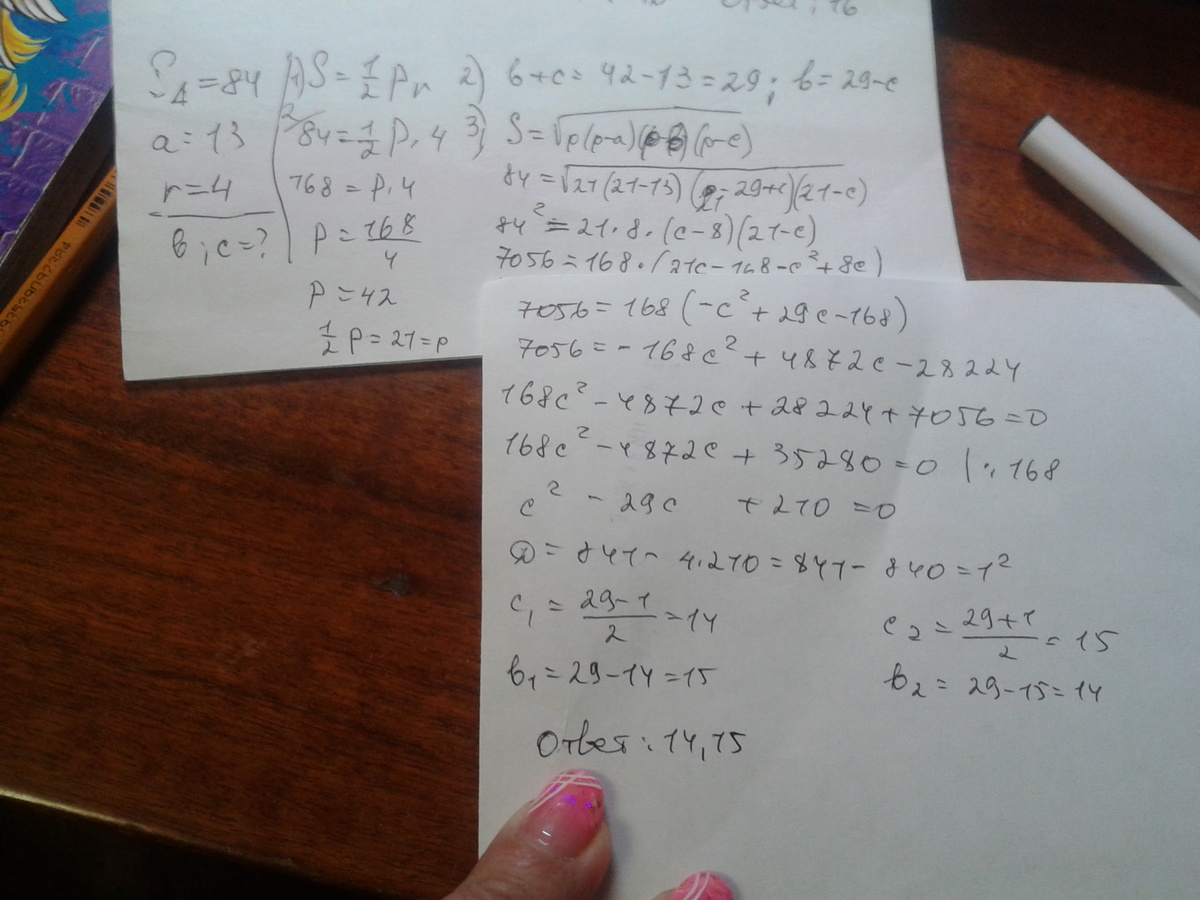 Ответ: 16
S_Δ = 84
a = 13
r = 4
в; c = ?
1) S = 1/2 Pr
84 = 1/2 P · 4
168 = P · 4
P = 168/4
P = 42
1/2 P = 21 = p
2) в + c = 42 - 13 = 29; в = 29 - c
3) S = √p(p-a)(p-в)(p-c)
84 = √21(21-13)(21-29+c)(21-c)
84² = 21 · 8 · (c-8)(21-c)
7056 = 168 · (21c - 168 - c² + 8c)
7056 = 168 (-c² + 29c - 168)
7056 = - 168c² + 4872c - 28224
168c² - 4872c + 28224 + 7056 = 0
168c² - 4872c + 35280 = 0 | : 168
c² - 29c + 210 = 0
D = 841 - 4.210 = 841 - 840 = 1²
c₁ = (29-1)/2 = 14 c₂ = (29+1)/2 = 15
в₁ = 29 - 14 = 15 в₂ = 29 - 15 = 14
Ответ: 14, 15